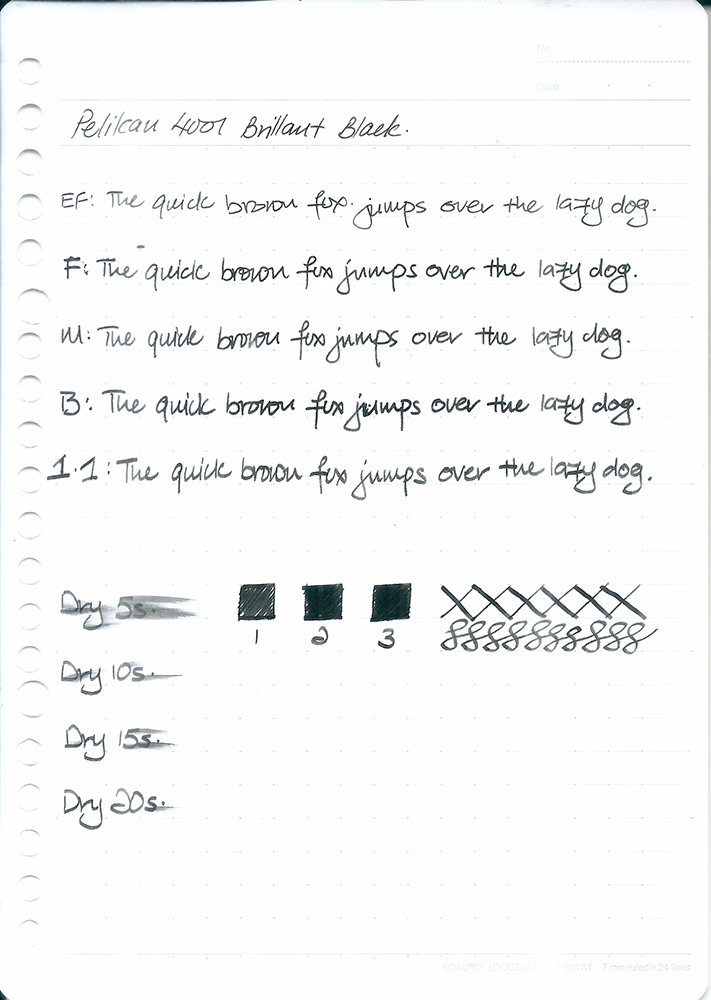 No.
Date
Pelikan 4001 Brillant Black.
EF: The quick brown fox jumps over the lazy dog.
F: The quick brown fox jumps over the lazy dog.
M: The quick brown fox jumps over the lazy dog.
B: The quick brown fox jumps over the lazy dog.
1.1: The quick brown fox jumps over the lazy dog.
Dry 5s.
1 2 3
Dry 10s.
Dry 15s.
Dry 20s.
KOKUYO LOOSE-LEAF 7 mm ruled × 24 lines